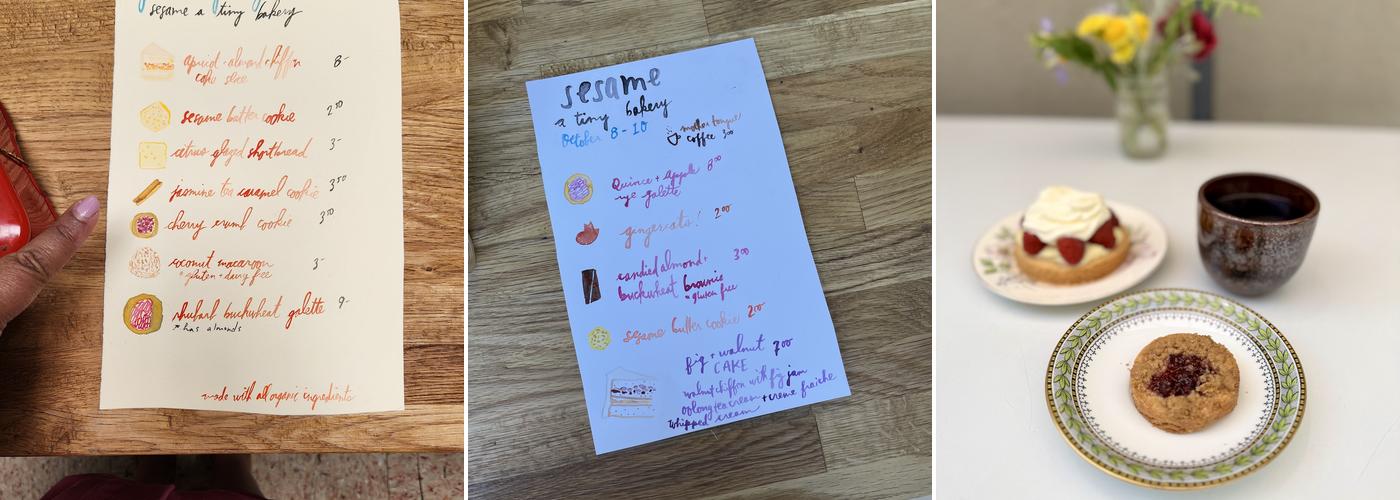 sesame a tiny bakery
apricot + almond chiffon 8-
cake slice
sesame butter cookie 2 50
citrus glazed shortbread 3-
jasmine tea caramel cookie 3 50
cherry crumb cookie 3 50
coconut macaroon 3-
*gluten + dairy free
rhubarb buckwheat galette 9-
* has almonds
made with all organic ingredients
sesame
a tiny bakery
October 8-10
mother tongue
coffee 3 00
Quince + apple 8 00
rye galette
gingercats! 2 00
candied almond + 3 00
buckwheat brownie
* gluten free
sesame butter cookie 2 00
fig + walnut 7 00
CAKE
walnut chiffon with fig jam
oolong tea cream + creme fraiche
whipped cream